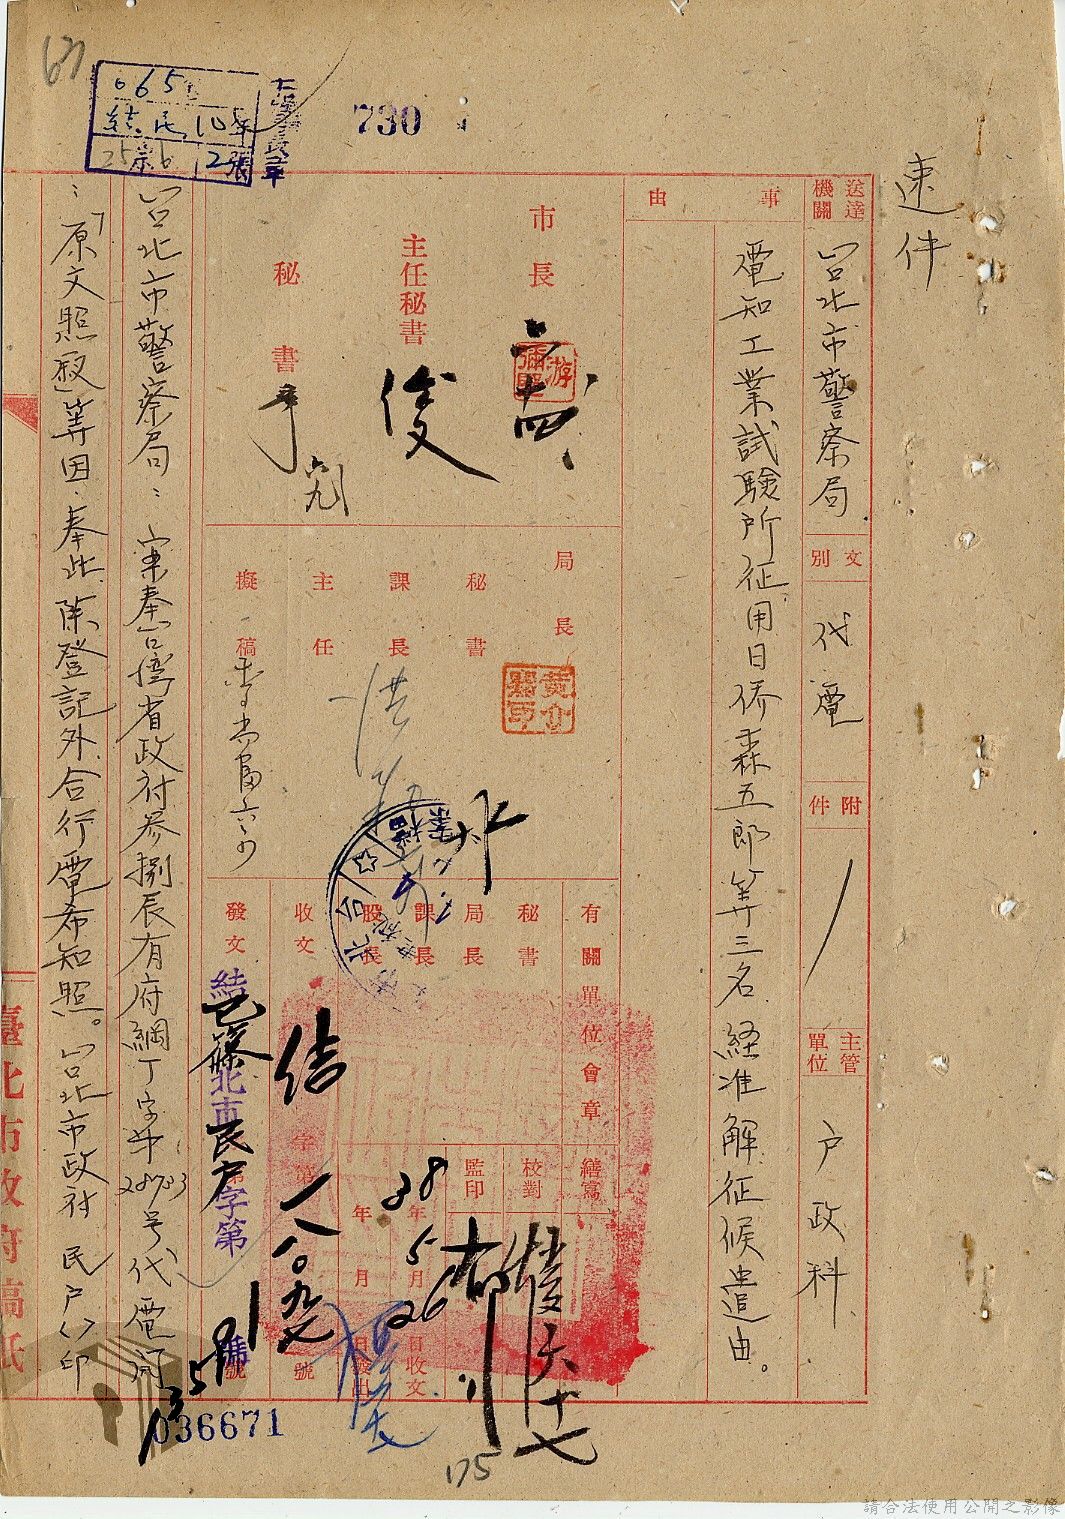 速件
730
送達機關
台北市警察局
文別
代電
附件
主管單位
户政科
事由
電知工業試驗所征用日僑森五郎等三名経准解征候遣由。
市長
游彌堅
主任秘書
俊
秘書
局長
秘書
課長
主任
擬稿
有關單位會章
秘書
局長
課長
股長
收文
發文
繕寫
校對
監印
38年5月26日收文
年月日發出
字第一八〇九七號
結
北市
民户
字第
號
台北市警察局：案奉台灣省政府叁捌辰有府綱丁字第28783号代電開
：「原文照敘」等因．奉此．除登記外合行電希知照。台北市政府 民户()印
臺北市政府稿紙
065
結民10年
12張
036671
175
請合法使用公開之影像